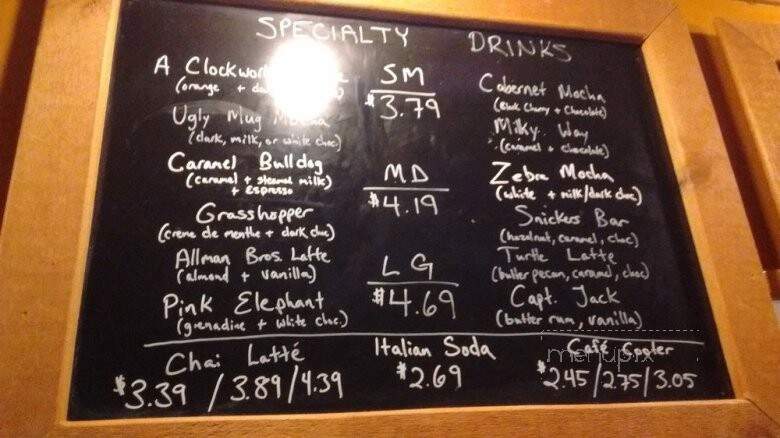 SPECIALTY DRINKS
A Clockwork
(orange +
Ugly Mug
(dark, milk, or white choc)
Caramel Bulldog
(caramel + steamed milk)
+ espresso
Grasshopper
(creme de menthe + dark choc)
Allman Bros. Latte
(almond + vanilla)
Pink Elephant
(grenadine + white choc.)
SM
$3.79
MD
$4.19
LG
$4.69
Cabernet Mocha
(Black Cherry + Chocolate)
Milky Way
(caramel + chocolate)
Zebra Mocha
(white + milk/dark choc)
Snickers Bar
(hazelnut, caramel, choc)
Turtle Latte
(butter pecan, caramel, choc)
Capt. Jack
(butter rum, vanilla)
Chai Latté
$3.39 / 3.89 / 4.39
Italian Soda
$2.69
Café Cooler
$2.45 / 2.75 / 3.05
menupix